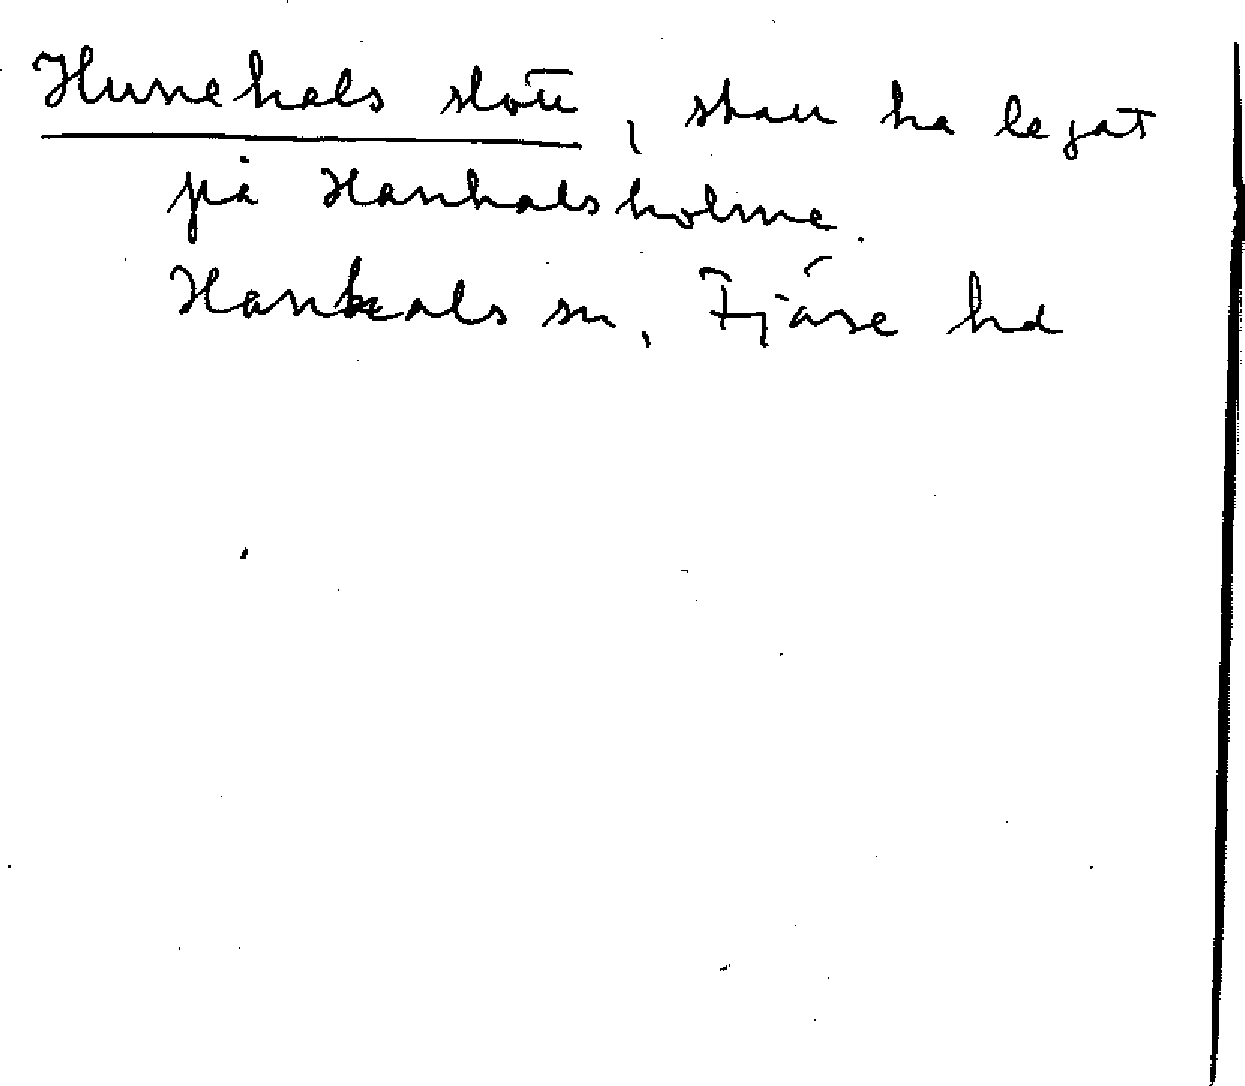 Hunehals slott, skall ha legat
på Hanhalsholme.
Hanhals sn, Fjäre hd